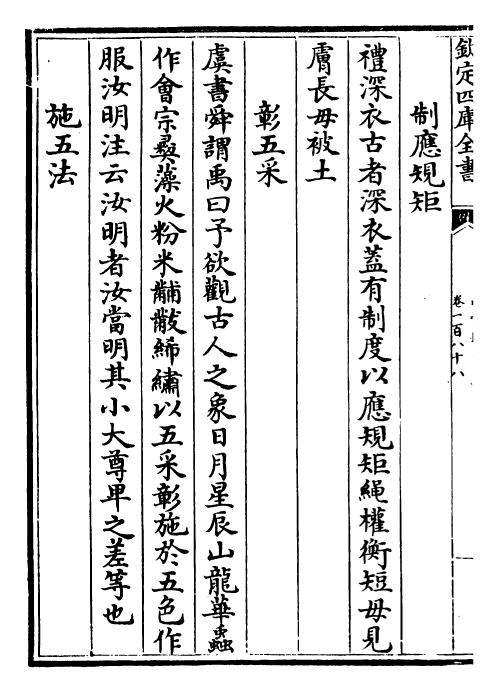 欽定四庫全書
卷一百八十八
制應規矩
禮深衣古者深衣蓋有制度以應規矩繩權衡短毋見
膚長毋被土
彰五采
虞書舜謂禹曰予欲觀古人之象日月星辰山龍華蟲
作會宗彞藻火粉米黼黻絺繡以五采彰施於五色作
服汝明注云汝明者汝當明其小大尊卑之差等也
施五法